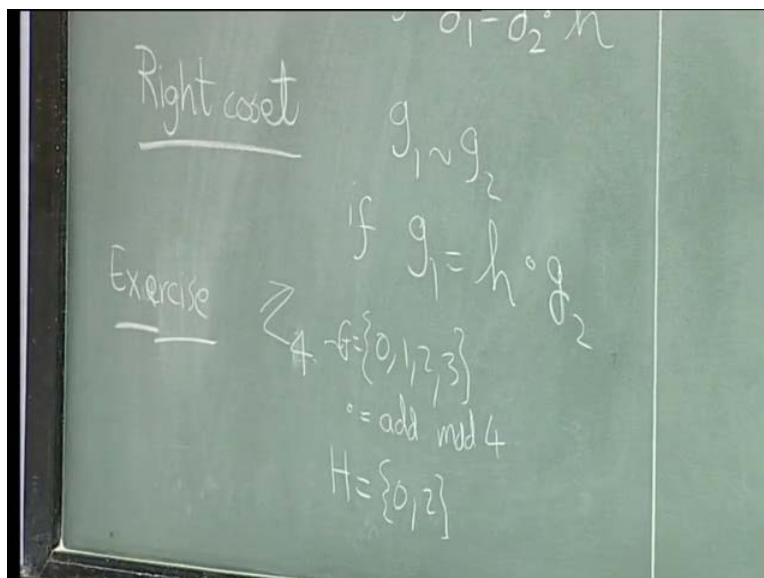 g₁ = g₂ ∘ h
Right coset
g₁ ~ g₂
if g₁ = h ∘ g₂
Exercise Z₄ ~ G = {0, 1, 2, 3}
∘ = add mod 4
H = {0, 2}